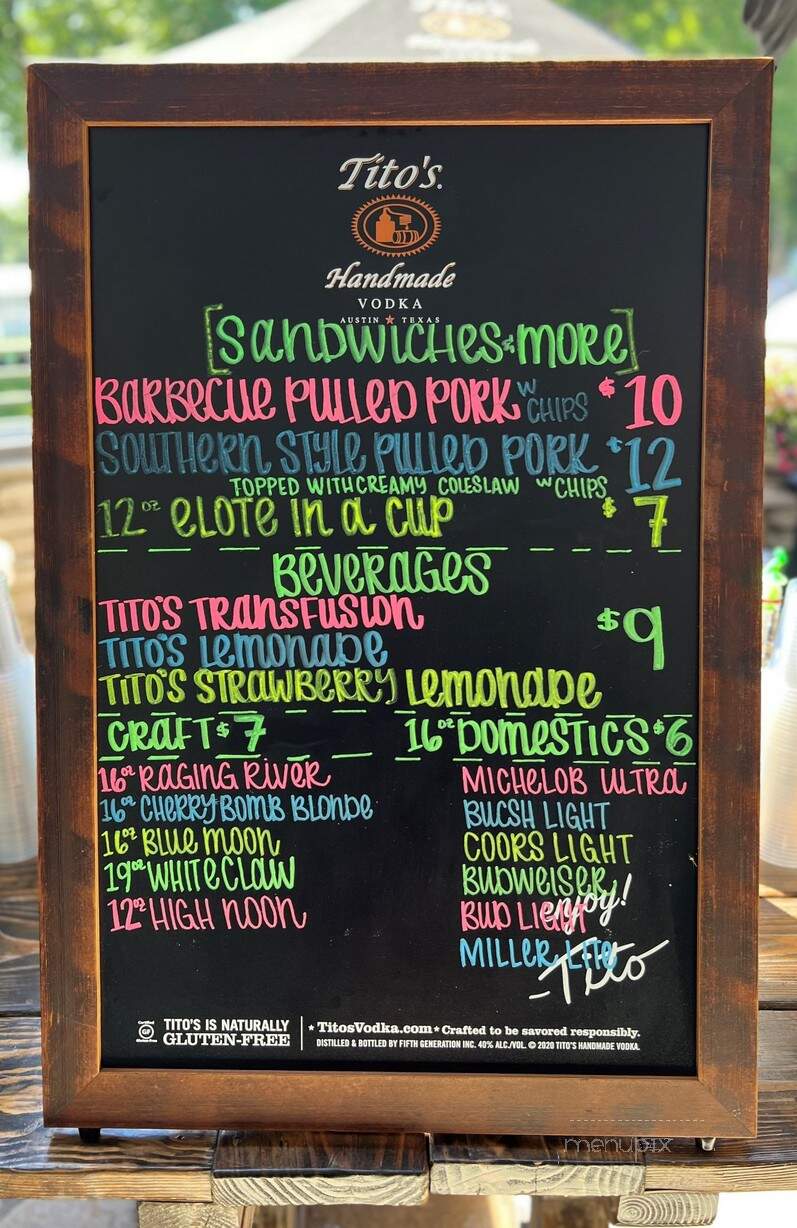 Tito's
Tito's.
Handmade
VODKA
AUSTIN ★ TEXAS
[SANDWICHES & MORE]
BARBECUE PULLED PORK W CHIPS $10
SOUTHERN STYLE PULLED PORK $12
TOPPED WITH CREAMY COLESLAW W CHIPS
12oz ELOTE IN A CUP $7
BEVERAGES
TITO'S TRANSFUSION $9
TITO'S LEMONADE
TITO'S STRAWBERRY LEMONADE
CRAFT $7
16oz DOMESTICS $6
16oz RAGING RIVER
16oz CHERRY BOMB BLONDE
16oz BLUE MOON
19oz WHITE CLAW
12oz HIGH NOON
MICHELOB ULTRA
BUCSH LIGHT
COORS LIGHT
BUDWEISER
BUD LIGHT
MILLER LITE
enjoy!
-Tito
Certified
GF
Gluten-Free
TITO'S IS NATURALLY
GLUTEN-FREE
★ TitosVodka.com ★ Crafted to be savored responsibly.
DISTILLED & BOTTLED BY FIFTH GENERATION INC. 40% ALC./VOL. © 2020 TITO'S HANDMADE VODKA.
menupix